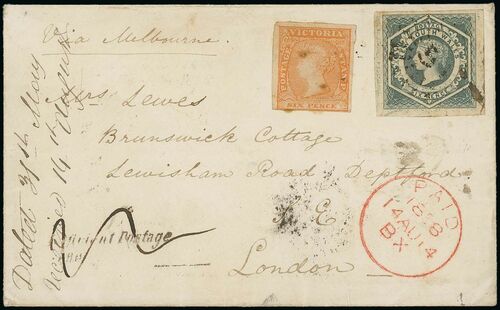 Via Melbourne.
VICTORIA
POSTAGE
STAMP
SIX PENCE
POSTAGE
SOUTH WALES
SIX PENCE
Mrs Lewes
Brunswick Cottage
Lewisham Road Deptford
E
London
Postage
PAID
14 AU 14
BX
Dated 31st May
received 14th August